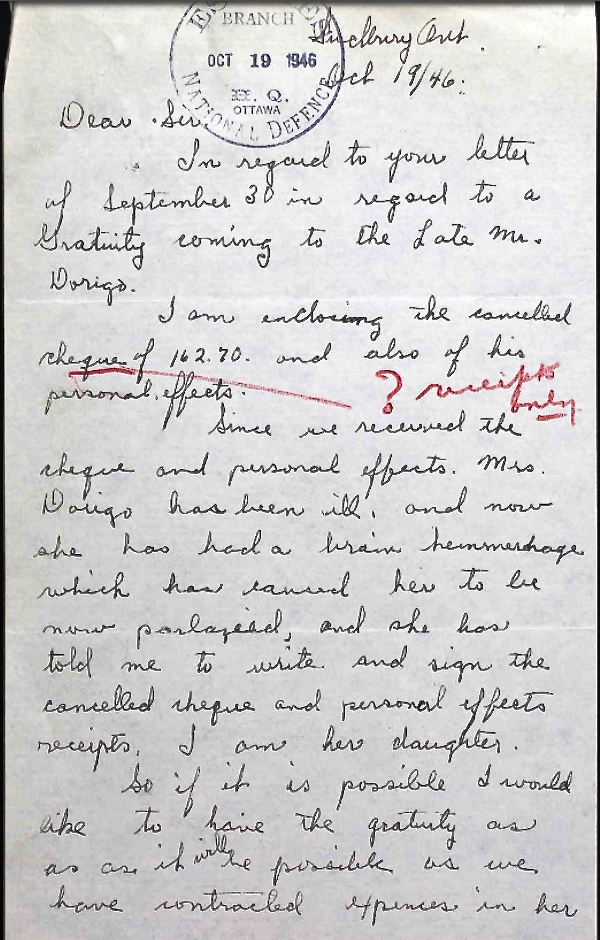 ESTATES
BRANCH
OCT 19 1946
H. Q.
OTTAWA
NATIONAL DEFENCE
Sudbury Ont.
Oct 19/46.
Dear Sir.
In regard to your letter
of September 30 in regard to a
Gratuity coming to the Late Mr.
Dorigo.
I am enclosing the cancelled
cheque of 162.70. and also of his
personal effects.
? receipts
only
Since we received the
cheque and personal effects. Mrs.
Dorigo has been ill, and now
she has had a brain hemmerhage
which has caused her to be
now parlazied, and she has
told me to write and sign the
cancelled cheque and personal effects
receipts. I am her daughter.
So if it is possible I would
like to have the gratuity as
as as it will be possible as we
have contracted expences in her